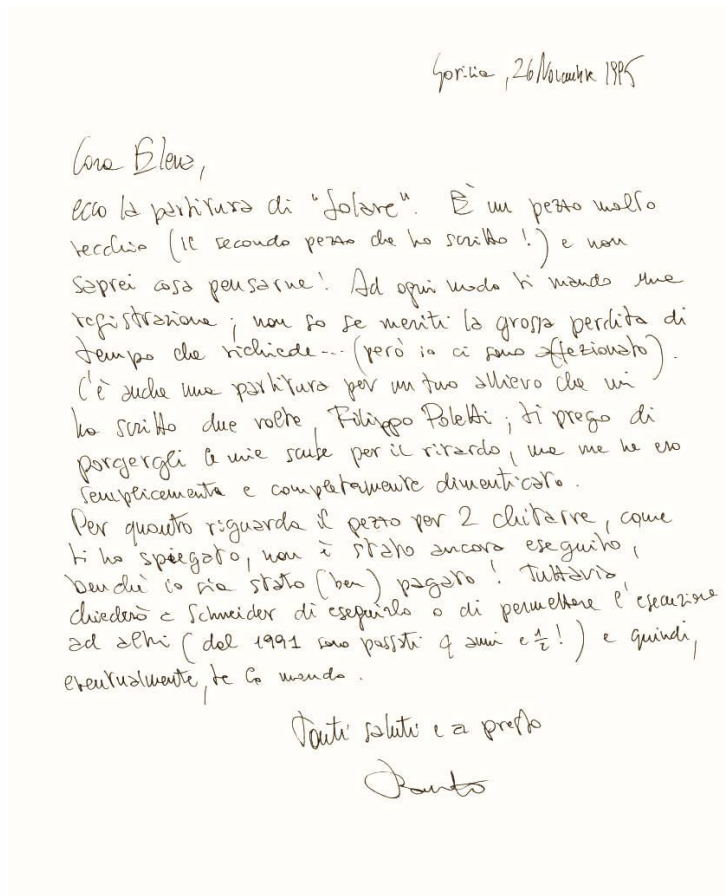 Gorizia, 26 Novembre 1995
Cara Elena,
ecco la partitura di "Solare". È un pezzo molto
vecchio (il secondo pezzo che ho scritto!) e non
saprei cosa pensarne! Ad ogni modo ti mando una
registrazione; non so se meriti la grossa perdita di
tempo che richiede... (però io ci sono affezionato).
C'è anche una partitura per un tuo allievo che mi
ha scritto due volte, Filippo Poletti; ti prego di
porgergli le mie scuse per il ritardo, ma me ne ero
semplicemente e completamente dimenticato.
Per quanto riguarda il pezzo per 2 chitarre, come
ti ho spiegato, non è stato ancora eseguito,
benché io sia stato (ben) pagato! Tuttavia
chiederò a Schneider di eseguirlo o di permettere l'esecuzione
ad altri (dal 1991 sono passati 4 anni e ½!) e quindi,
eventualmente, te lo mando.
Tanti saluti e a presto